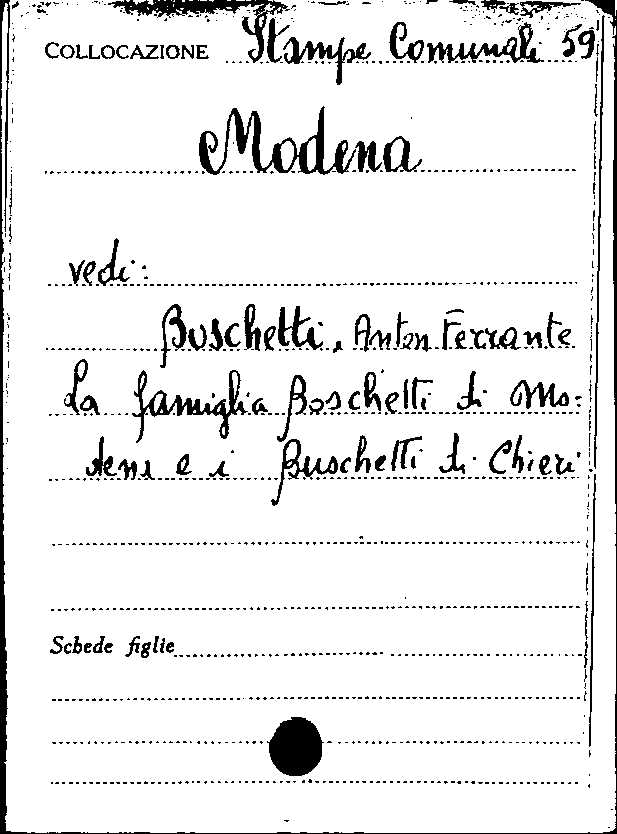 COLLOCAZIONE Stampe Comunali 59
Modena
vedi:
Buschetti, Anton Ferrante
La famiglia Boschetti di Mo=
dena e i Buschetti di Chieri
Schede figlie